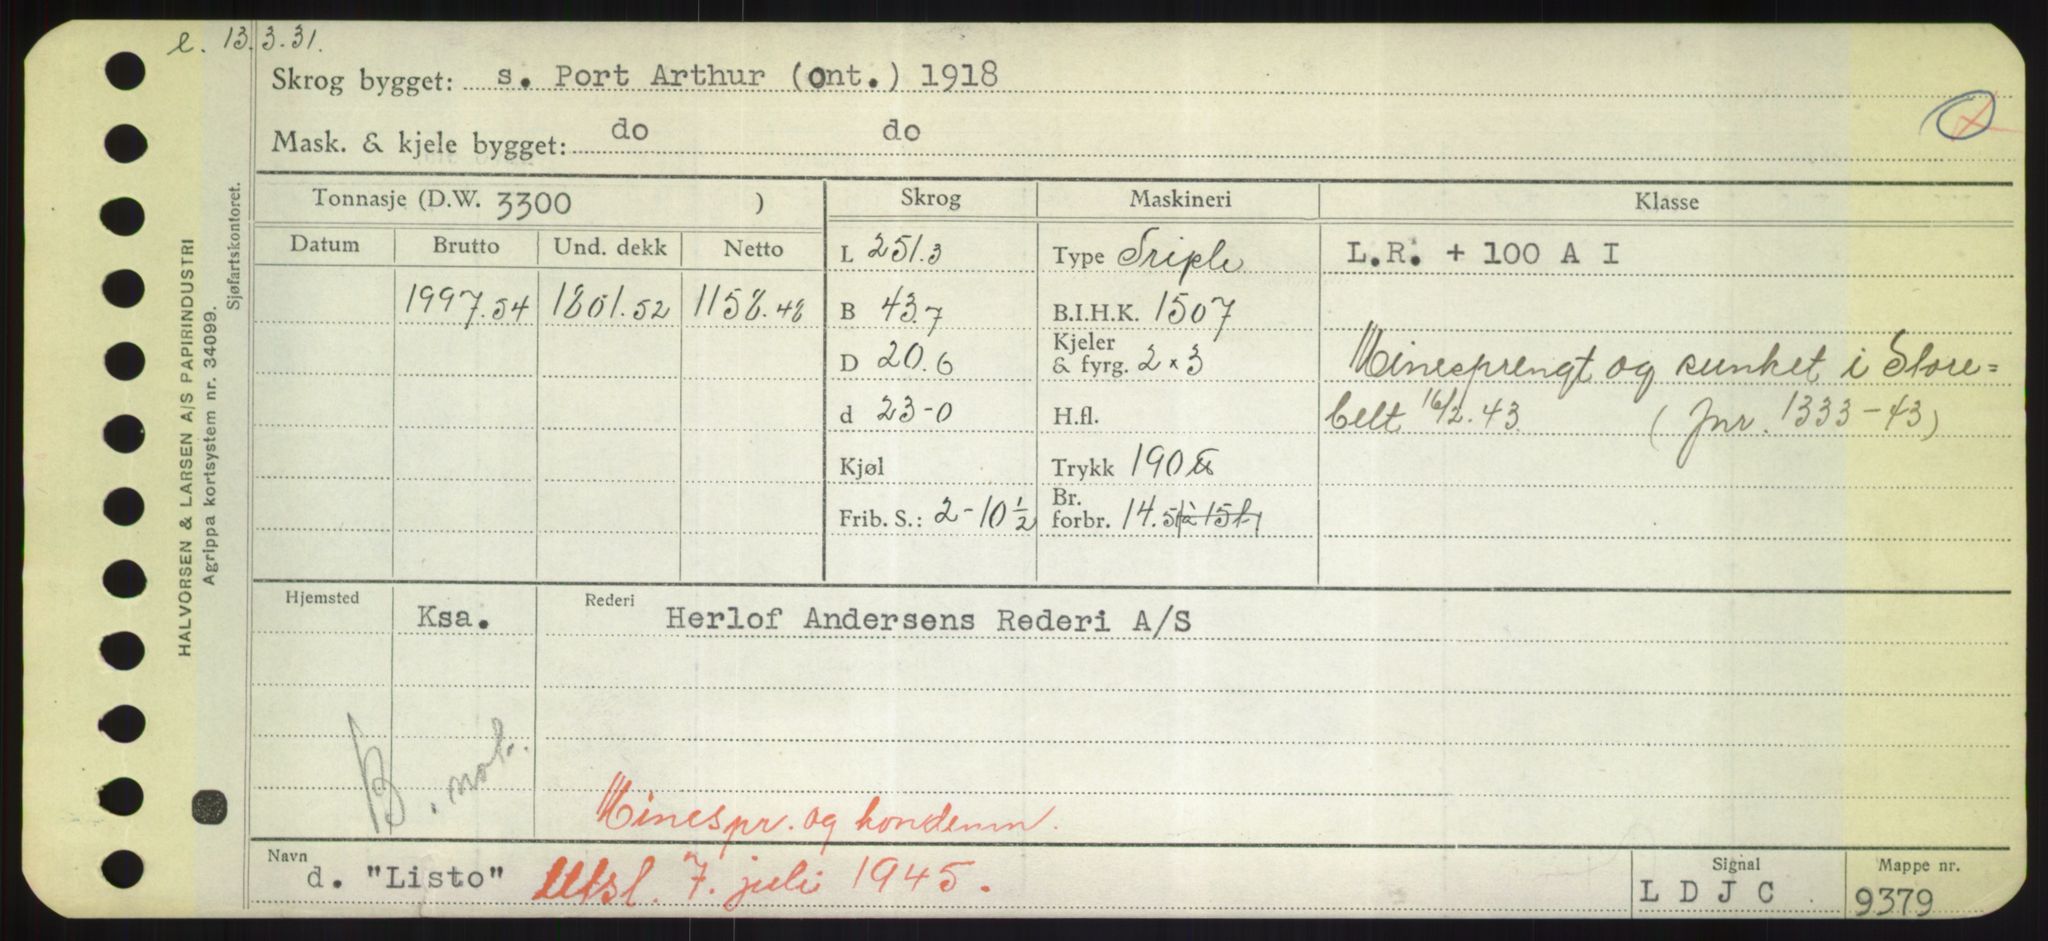 e. 13.3.31.
Skrog bygget: s. Port Arthur (Ont.) 1918
Mask. & kjele bygget: do do
Tonnasje (D.W. 3300 ) Skrog Maskineri Klasse
Datum Brutto Und. dekk Netto L 251.3 Type Triple L.R. + 100 A I
1997.54 1801.52 1158.48 B 43.7 B.I.H.K. 1507
D 20.6 Kjeler & fyrg. 2 x 3 Minesprengt og sunket i Store=
d 23-0 H.fl. belt 16/2.43 (Jnr. 1333-43)
Kjøl Trykk 190 ℔
Frib. S.: 2-10 1/2 Br. forbr. 14.5 à 15 t.
Hjemsted Ksa. Rederi Herlof Andersens Rederi A/S
B.
Minespr. og kondemn.
Navn d. "Listo" Utsl. 7. juli 1945. Signal L D J C Mappe nr. 9379
HALVORSEN & LARSEN A/S PAPIRINDUSTRI
Agrippa kortsystem nr. 34099.
Sjøfartskontoret.